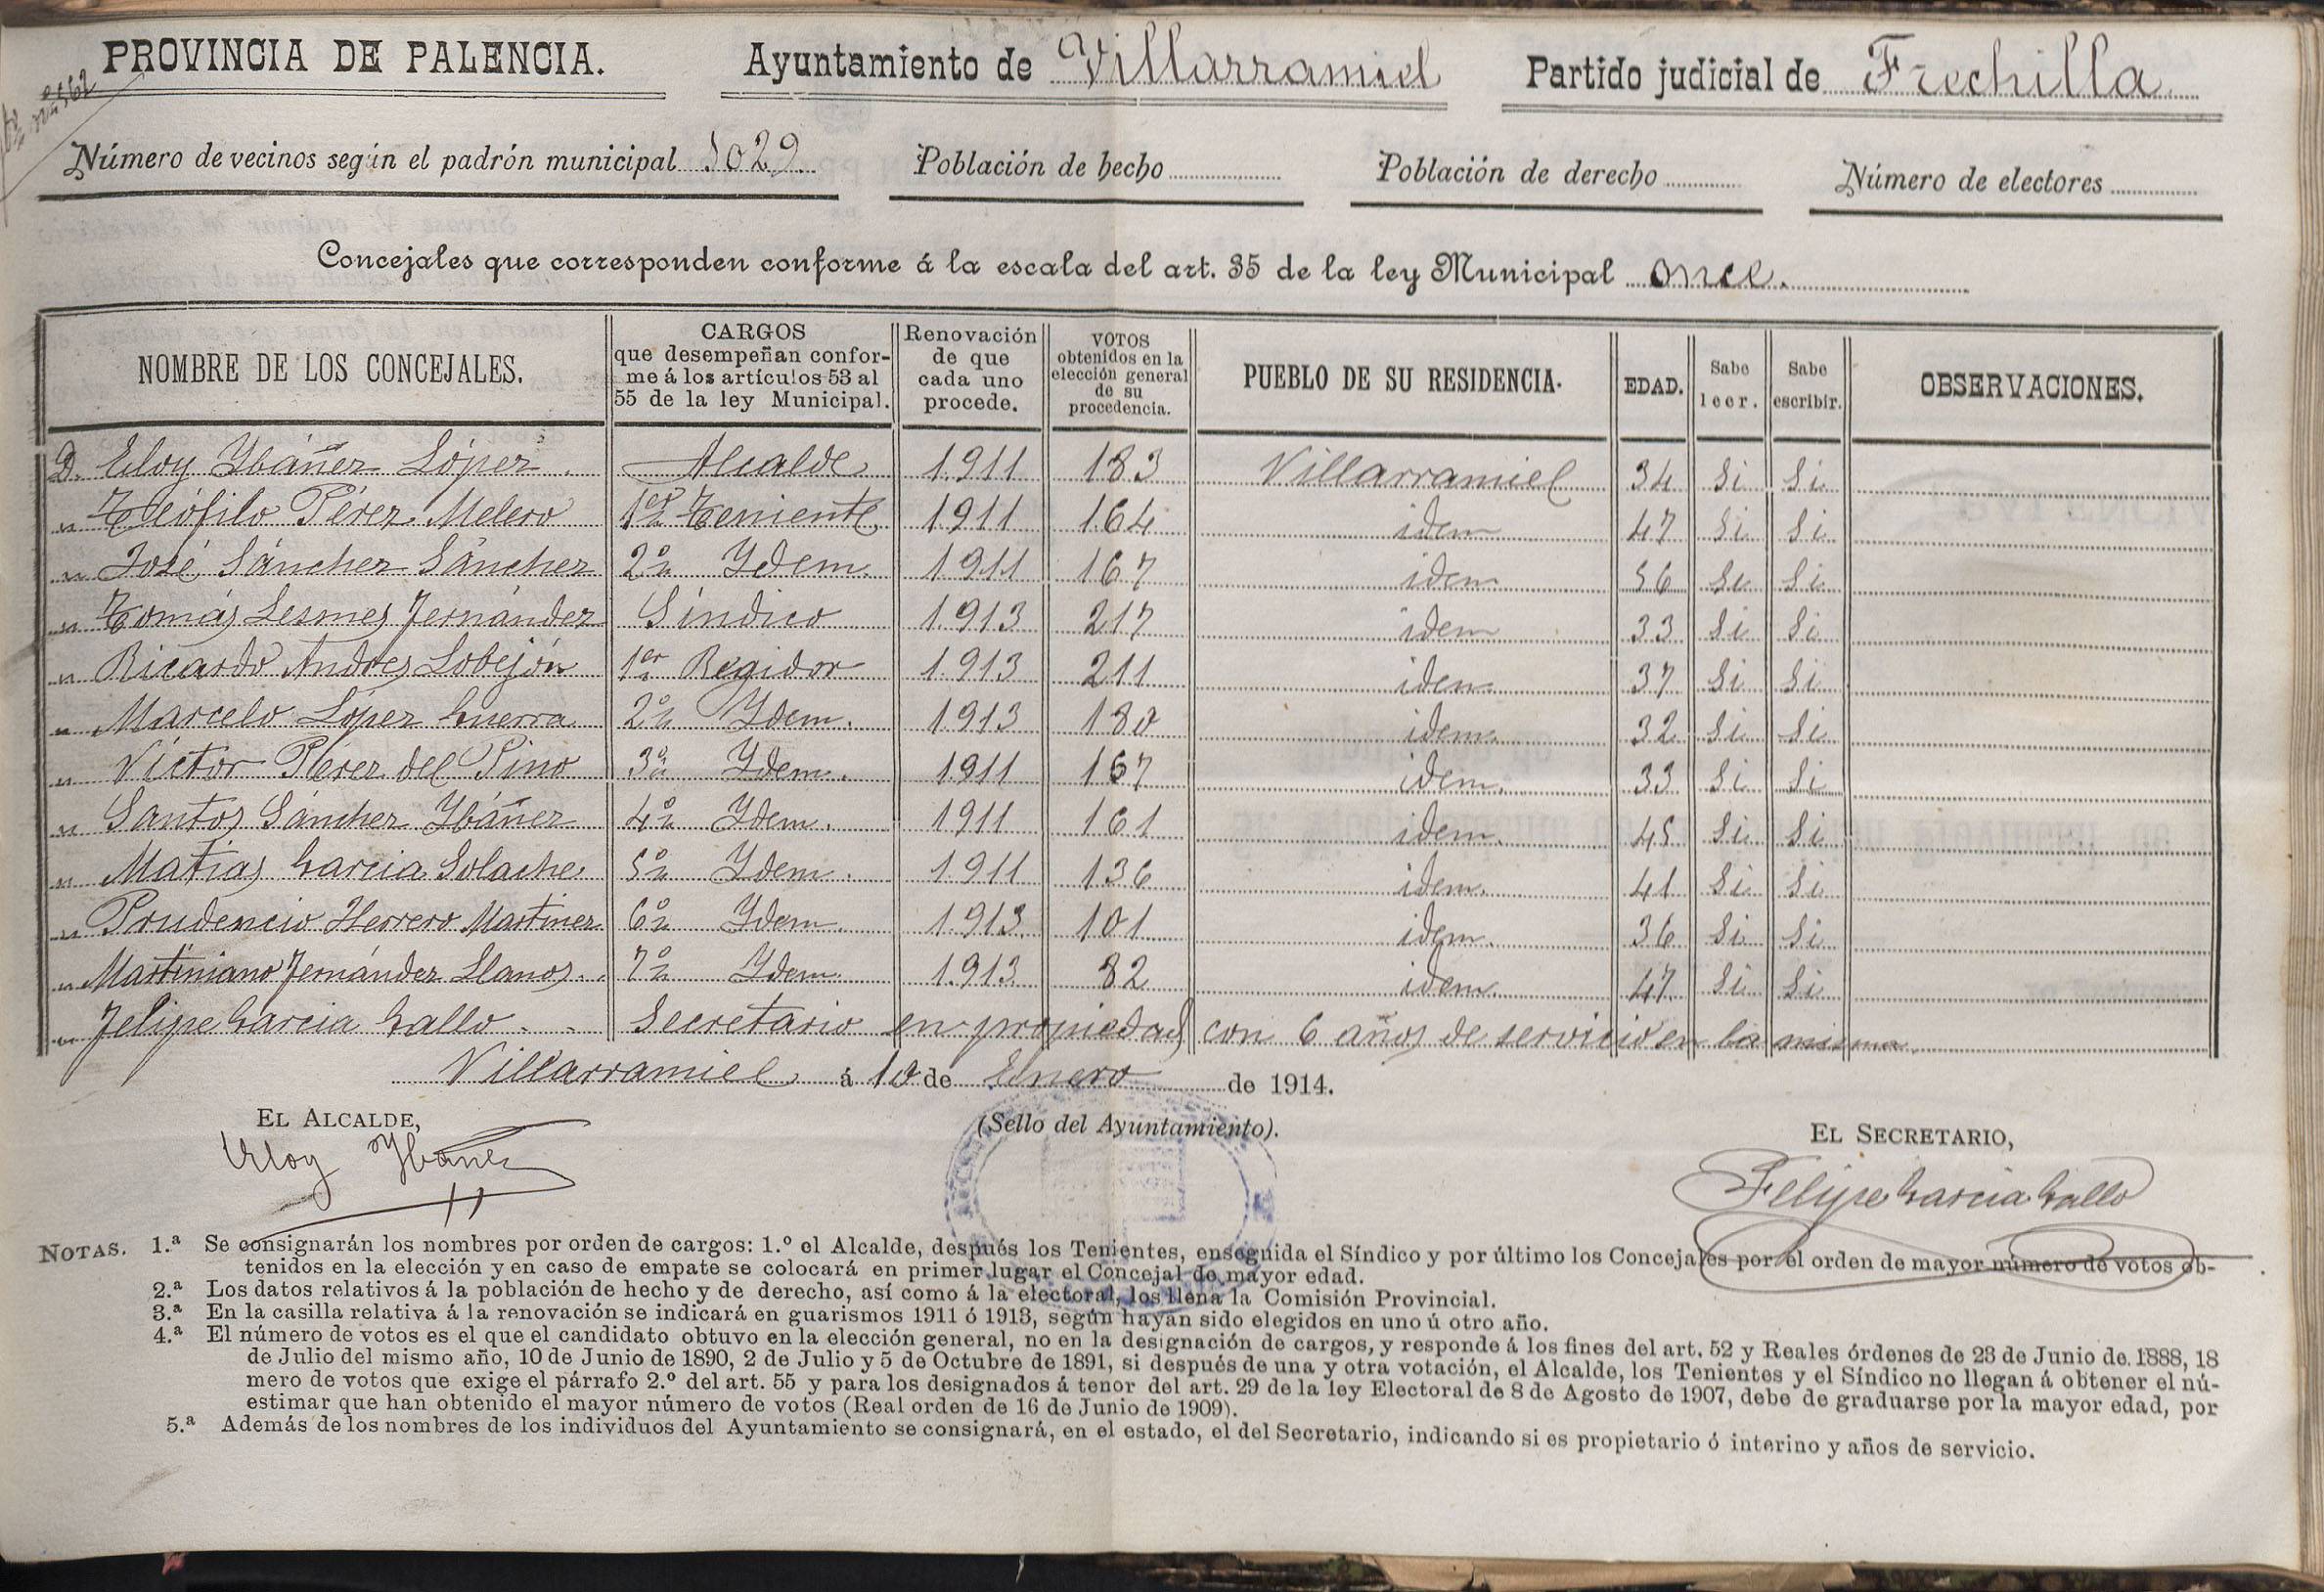 PROVINCIA DE PALENCIA. Ayuntamiento de Villarramiel Partido judicial de Frechilla
Número de vecinos según el padrón municipal 1029 Población de hecho Población de derecho Número de electores
Concejales que corresponden conforme á la escala del art. 35 de la ley Municipal once.
NOMBRE DE LOS CONCEJALES. CARGOS que desempeñan conforme á los artículos 53 al 55 de la ley Municipal. Renovación de que cada uno procede. VOTOS obtenidos en la elección general de su procedencia. PUEBLO DE SU RESIDENCIA. EDAD. Sabe leer. Sabe escribir. OBSERVACIONES.
D. Eloy Ybáñez López. Alcalde 1911 183 Villarramiel 34 Si Si
" Teófilo Pérez Melero 1er Teniente 1911 164 idem 47 Si Si
" José Sánchez Sánchez 2º Ydem. 1911 167 idem 56 Si Si
" Tomás Lesmes Fernández Síndico 1913 217 idem 33 Si Si
" Ricardo Andres Lobejón 1er Regidor 1913 211 idem 37 Si Si
" Marcelo López Guerra 2º Ydem. 1913 180 idem 32 Si Si
" Víctor Pérez del Pino 3º Ydem. 1911 167 idem. 33 Si Si
" Santos Sánchez Ybáñez 4º Ydem. 1911 161 idem. 45 Si Si
" Matias Garcia Solache 5º Ydem. 1911 136 idem. 41 Si Si
" Prudencio Herrero Martinez 6º Ydem. 1913 101 idem. 36 Si Si
" Martiniano Fernández Llanos. 7º Ydem. 1913 82 idem. 47 Si Si
" Felipe Garcia Gallo. Secretario en propiedad con 6 años de servicio en la misma.
Villarramiel á 10 de Enero de 1914.
EL ALCALDE, (Sello del Ayuntamiento). EL SECRETARIO,
Eloy Ybáñez Felipe Garcia Gallo
NOTAS. 1.ª Se consignarán los nombres por orden de cargos: 1.º el Alcalde, después los Tenientes, enseguida el Síndico y por último los Concejales por el orden de mayor número de votos ob-
tenidos en la elección y en caso de empate se colocará en primer lugar el Concejal de mayor edad.
2.ª Los datos relativos á la población de hecho y de derecho, así como á la electoral, los llena la Comisión Provincial.
3.ª En la casilla relativa á la renovación se indicará en guarismos 1911 ó 1913, según hayan sido elegidos en uno ú otro año.
4.ª El número de votos es el que el candidato obtuvo en la elección general, no en la designación de cargos, y responde á los fines del art. 52 y Reales órdenes de 23 de Junio de 1888, 18
de Julio del mismo año, 10 de Junio de 1890, 2 de Julio y 5 de Octubre de 1891, si después de una y otra votación, el Alcalde, los Tenientes y el Síndico no llegan á obtener el nú-
mero de votos que exige el párrafo 2.º del art. 55 y para los designados á tenor del art. 29 de la ley Electoral de 8 de Agosto de 1907, debe de graduarse por la mayor edad, por
estimar que han obtenido el mayor número de votos (Real orden de 16 de Junio de 1909).
5.ª Además de los nombres de los individuos del Ayuntamiento se consignará, en el estado, el del Secretario, indicando si es propietario ó interino y años de servicio.